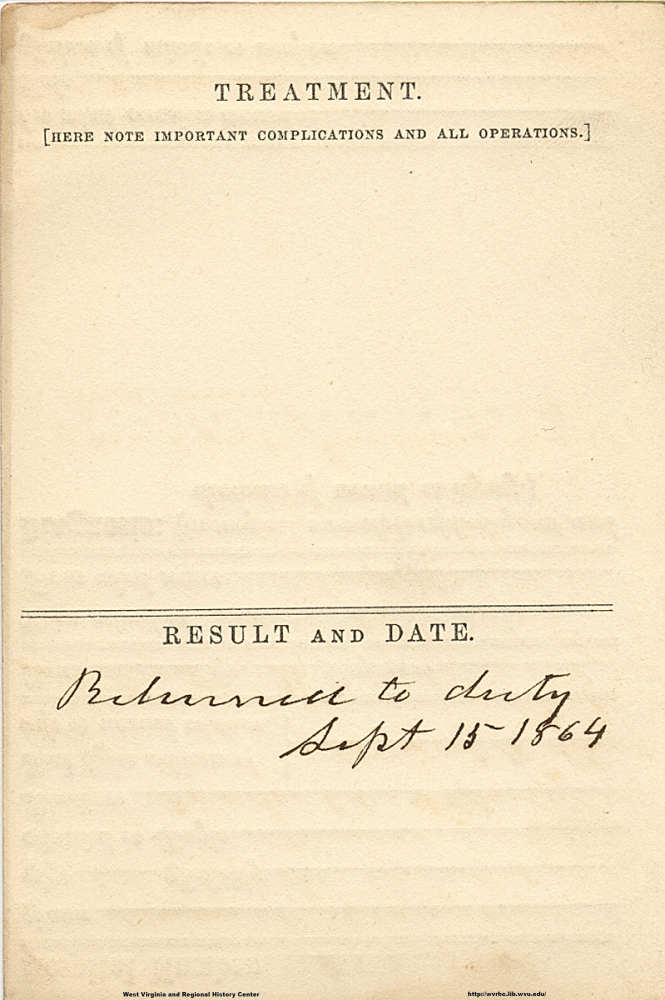 TREATMENT.
[HERE NOTE IMPORTANT COMPLICATIONS AND ALL OPERATIONS.]
RESULT AND DATE.
Returned to duty
Sept 15 1864
West Virginia and Regional History Center http://wvrhc.lib.wvu.edu/